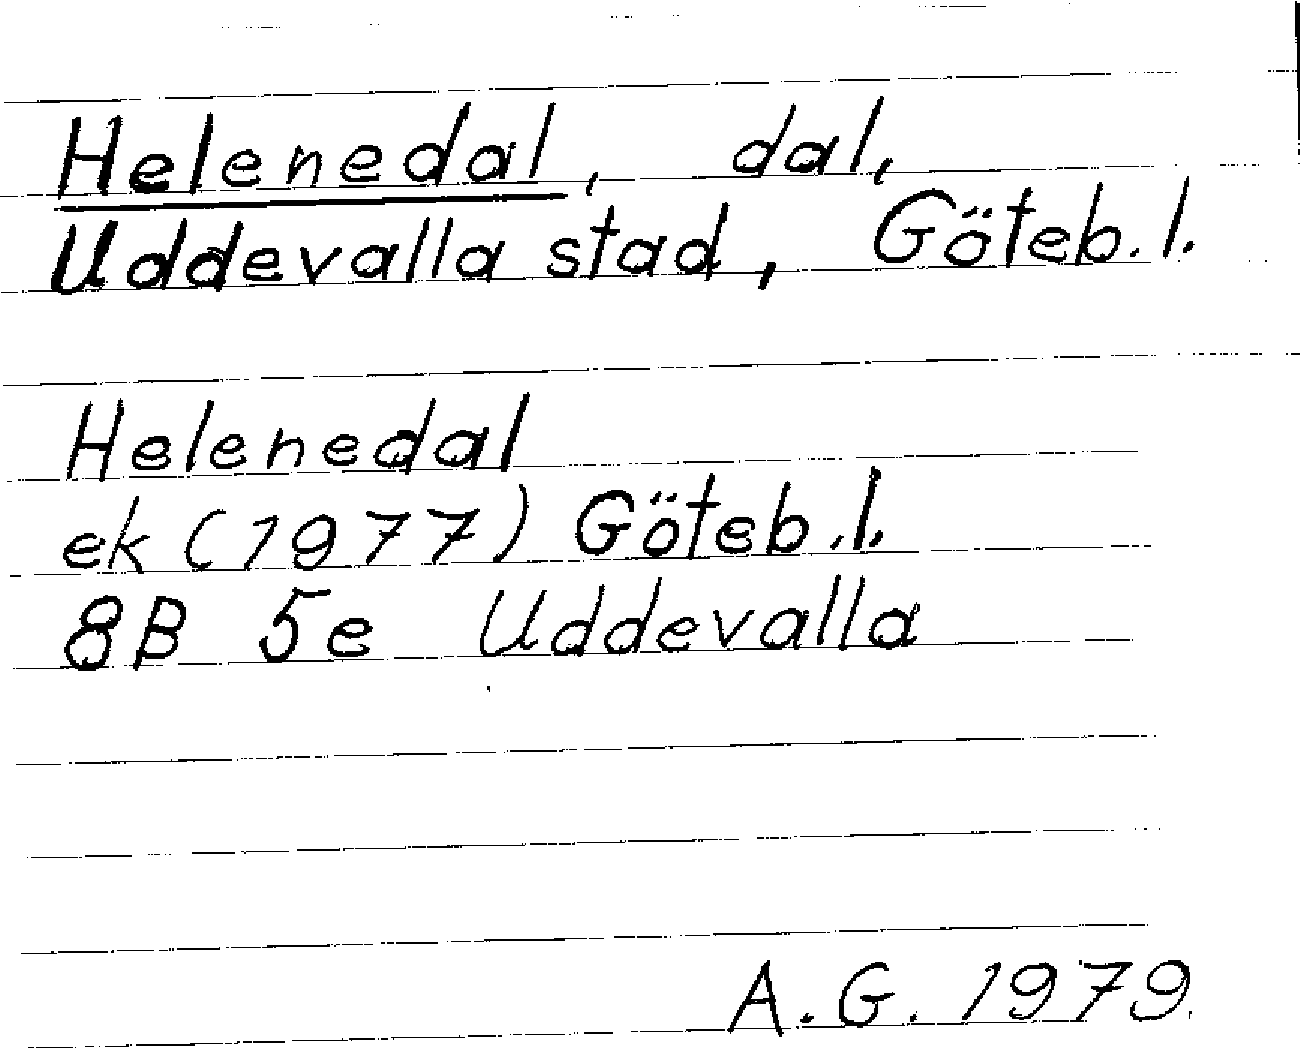 Helenedal, dal,
Uddevalla stad, Göteb. l.
Helenedal
ek (1977) Göteb. l.
8B 5e Uddevalla
A. G. 1979